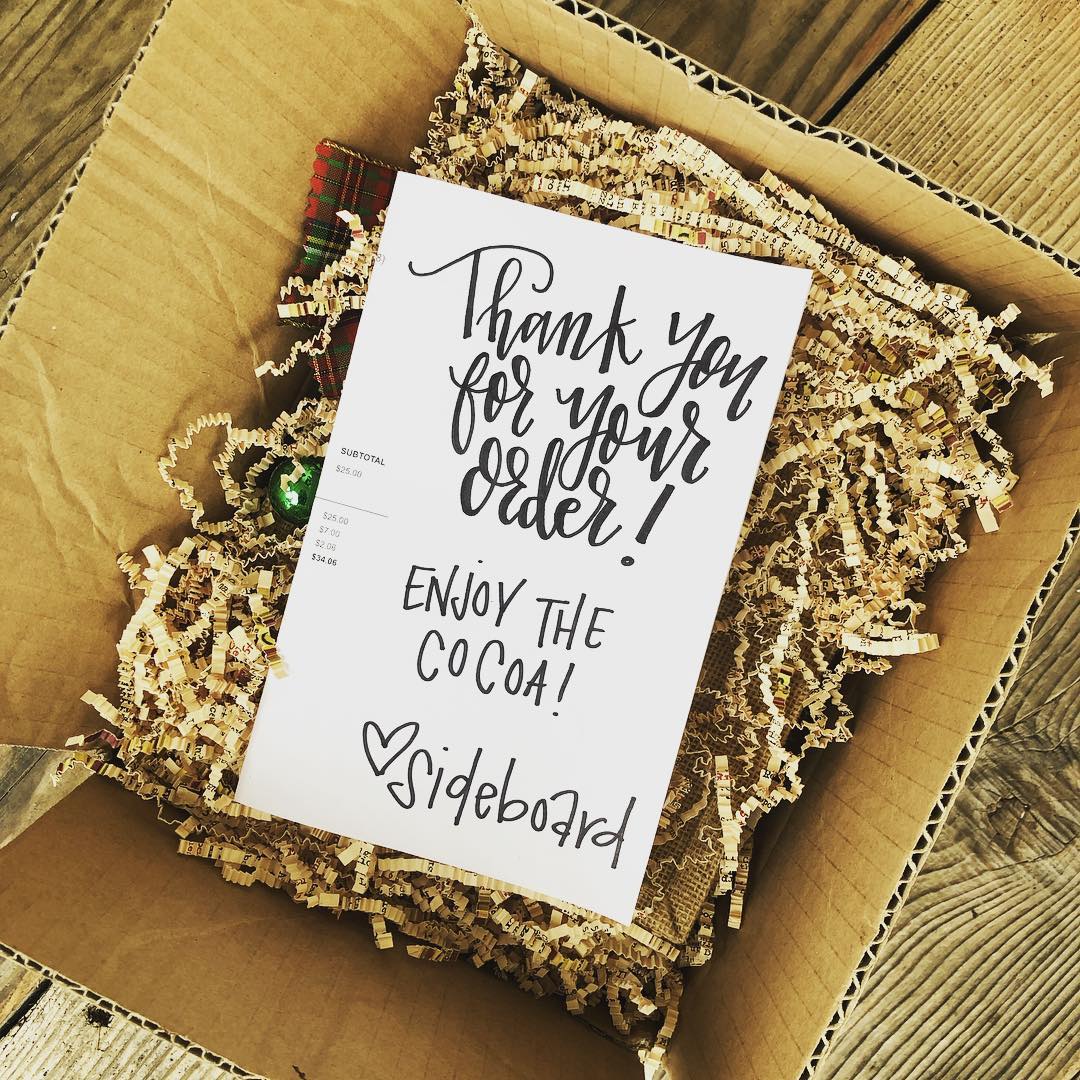 Thank you
for your
order!
SUBTOTAL
$25.00
$25.00
$7.00
$2.06
$34.06
ENJOY THE
COCOA!
♡sideboard